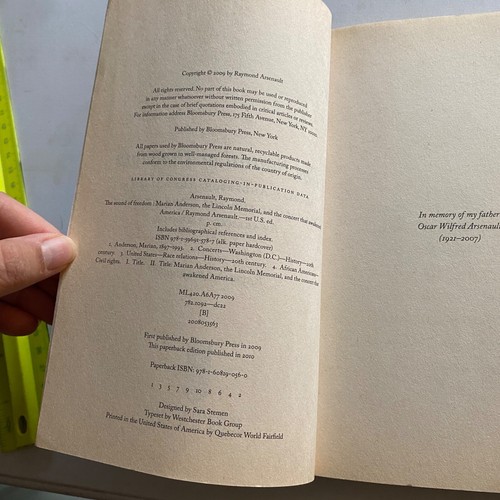 Copyright © 2009 by Raymond Arsenault
All rights reserved. No part of this book may be used or reproduced
in any manner whatsoever without written permission from the publisher
except in the case of brief quotations embodied in critical articles or reviews.
For information address Bloomsbury Press, 175 Fifth Avenue, New York, NY 10010.
Published by Bloomsbury Press, New York
All papers used by Bloomsbury Press are natural, recyclable products made
from wood grown in well-managed forests. The manufacturing processes
conform to the environmental regulations of the country of origin.
LIBRARY OF CONGRESS CATALOGING-IN-PUBLICATION DATA
Arsenault, Raymond.
The sound of freedom : Marian Anderson, the Lincoln Memorial, and the concert that awakened
America / Raymond Arsenault.—1st U.S. ed.
p. cm.
Includes bibliographical references and index.
ISBN 978-1-59691-578-7 (alk. paper hardcover)
1. Anderson, Marian, 1897–1993. 2. Concerts—Washington (D.C.)—History—20th
century. 3. United States—Race relations—History—20th century. 4. African Americans—
Civil rights. I. Title. II. Title: Marian Anderson, the Lincoln Memorial, and the concert that
awakened America.
ML420.A6A77 2009
782.1092—dc22
[B]
2008053563
First published by Bloomsbury Press in 2009
This paperback edition published in 2010
Paperback ISBN: 978-1-60819-056-0
1 3 5 7 9 10 8 6 4 2
Designed by Sara Stemen
Typeset by Westchester Book Group
Printed in the United States of America by Quebecor World Fairfield
In memory of my father
Oscar Wilfred Arsenault
(1921–2007)